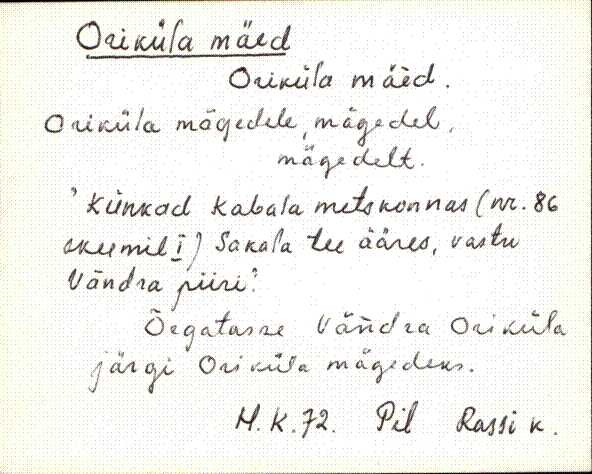 Oriküla mäed
Oriküla mäèd.
Oriküla mägedele, mägedel,
mägedelt.
'Künkad Kabala metskonnas (nr. 86
skeemil I) Sakala tee ääres, vastu
Vändra piiri'.
Õegatasse Vändra Oriküla
järgi Oriküla mägedeks.
M.K.72. Pil Rassi k.